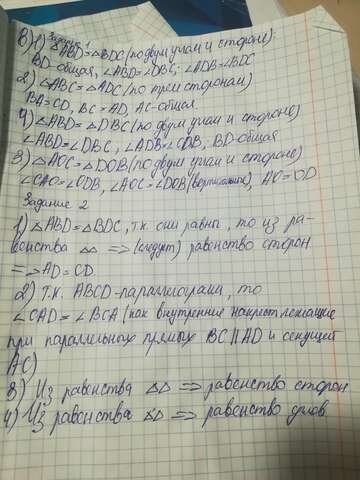 Задание 1
В) 1) △ABD=△BDC (по двум углам и стороне):
BD-общая, ∠ABD=∠DBC; ∠ADB=∠BDC
2) △ABC=△ADC (по трем сторонам)
BA=CD, BC=AD, AC-общая.
4) △ABD=△DBC (по двум углам и стороне)
∠ABD=∠DBC, ∠ADB=∠CDB, BD-общая
3) △AOC=△DOB (по двум углам и стороне)
∠CAO=∠ODB, ∠AOC=∠DOB (вертикальные), AO=OD
Задание 2
1) △ABD=△BDC, т.к. они равны, то из ра-
венства △△ => (следует) равенство сторон
=> AD=CD.
2) т.к. ABCD-параллелограмм, то
∠CAD=∠BCA (как внутренние накрест лежащие
при параллельных прямых BC||AD и секущей
AC)
3) Из равенства △△ => равенство сторон
4) Из равенства △△ => равенство углов.